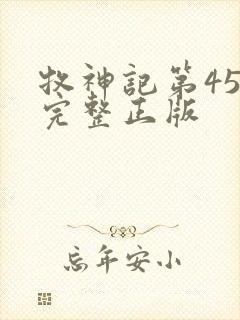 牧神記第45
完整正版
忘年安小